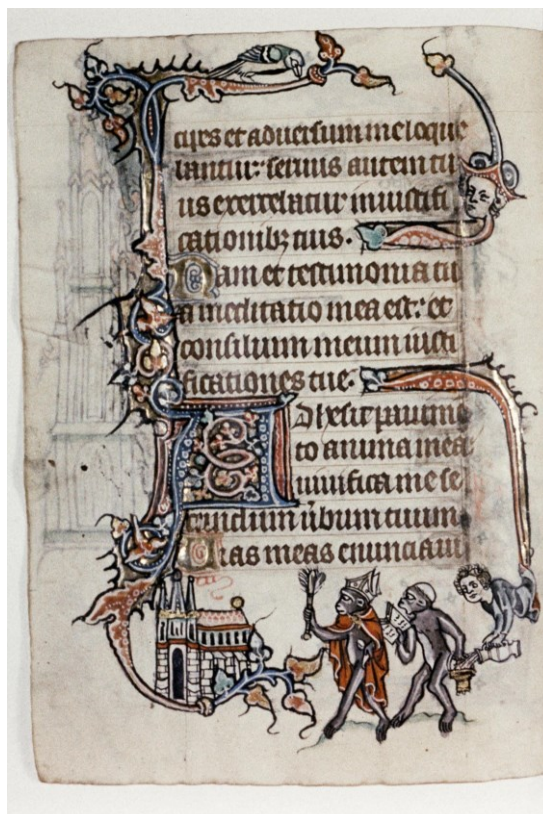 cipes et adversum me loque
bantur: servus autem tu
us exercebatur in iustifi
cationibꝫ tuis.
Nam et testimonia tu
a meditatio mea est: et
consilium meum iusti
ficationes tue:
Adhesit pavimē
to anima mea
vivifica me se
cundum ūbum tuum
Vias meas enunciavi